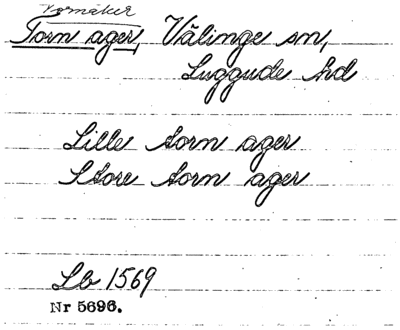 Tornåker
Torn ager, Välinge sn,
Luggude hd
Lille torn ager
Store torn ager
Lb 1569
Nr 5696.